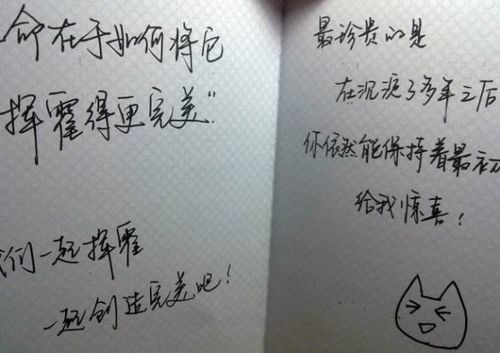 命在于如何将它
挥霍得更完美"
们一起挥霍
一起创造完美吧！
最珍贵的是
在沉淀了多年之后
你依然能保持着最初
给我惊喜！